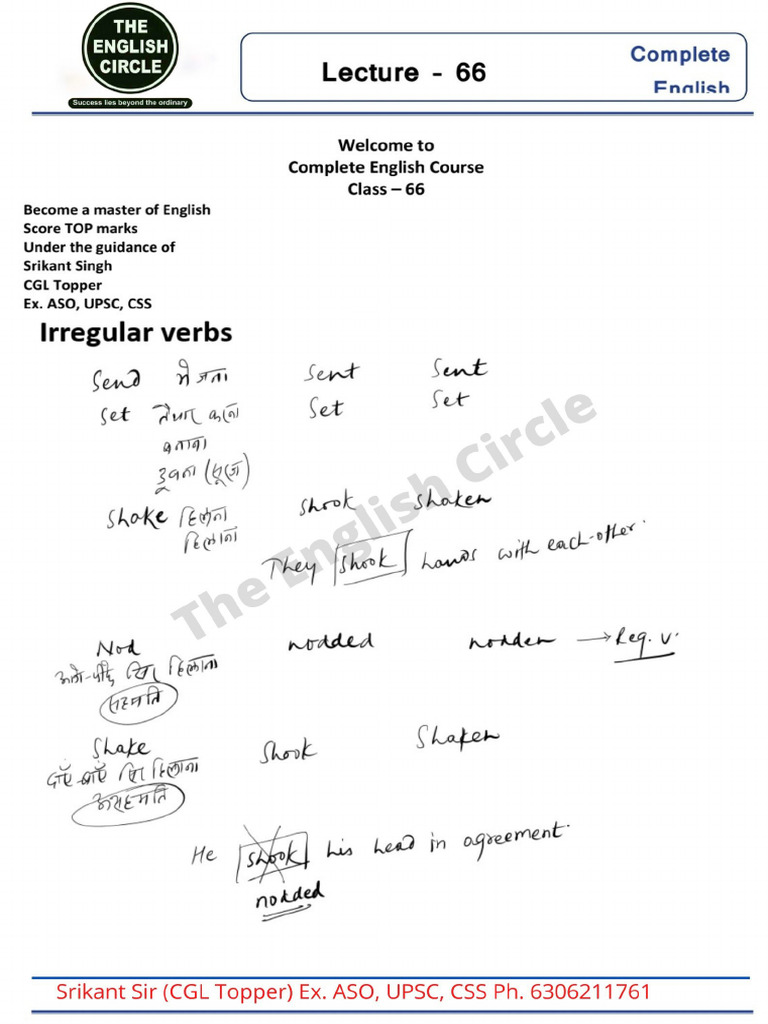 THE
ENGLISH
CIRCLE
Success lies beyond the ordinary
Lecture - 66
Complete
English
Welcome to
Complete English Course
Class – 66
Become a master of English
Score TOP marks
Under the guidance of
Srikant Singh
CGL Topper
Ex. ASO, UPSC, CSS
Irregular verbs
Send भेजना Sent Sent
Set तैयार करना Set Set
बनाना
डूबना (सूरज)
Shake हिलना Shook Shaken
हिलाना
They shook hands with each-other.
The English Circle
Nod nodded nodden → Reg. v.
आगे-पीछे सिर हिलाना
सहमति
Shake Shook Shaken
दाएँ-बाएँ सिर हिलाना
असहमति
He shook his head in agreement.
nodded
Srikant Sir (CGL Topper) Ex. ASO, UPSC, CSS Ph. 6306211761